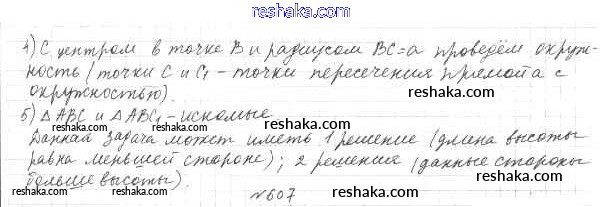 reshaka.com
4) С центром в точке В и радиусом ВС=а проведём окруж-
ность (точки С и С₁ - точки пересечения прямой а с
reshaka.com
окружностью).
reshaka.com
5) △АВС и △АВС₁ - искомые.
reshaka.com
Данная задача может иметь 1 решение (длина высоты
reshaka.com
равна меньшей стороне); 2 решения (данные стороны
больше высоты).
reshaka.com
reshaka.com
№607